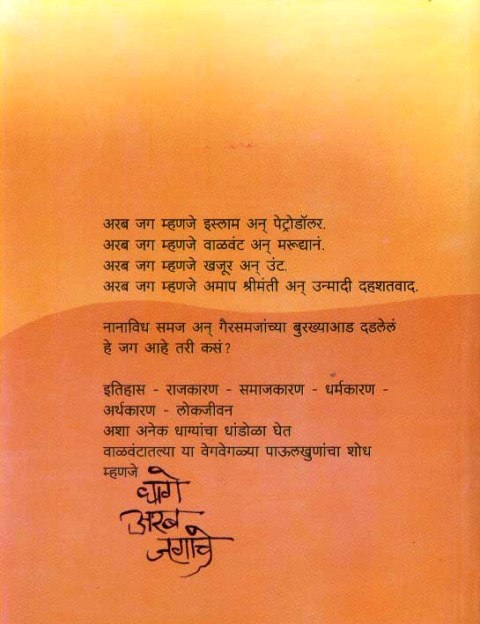 अरब जग म्हणजे इस्लाम अन् पेट्रोडॉलर.
अरब जग म्हणजे वाळवंट अन् मरूद्यानं.
अरब जग म्हणजे खजूर अन् उंट.
अरब जग म्हणजे अमाप श्रीमंती अन् उन्मादी दहशतवाद.
नानाविध समज अन् गैरसमजांच्या बुरख्याआड दडलेलं
हे जग आहे तरी कसं?
इतिहास - राजकारण - समाजकारण - धर्मकारण -
अर्थकारण - लोकजीवन
अशा अनेक धाग्यांचा धांडोळा घेत
वाळवंटातल्या या वेगवेगळ्या पाऊलखुणांचा शोध
म्हणजे
धागे
अरब
जगाचे